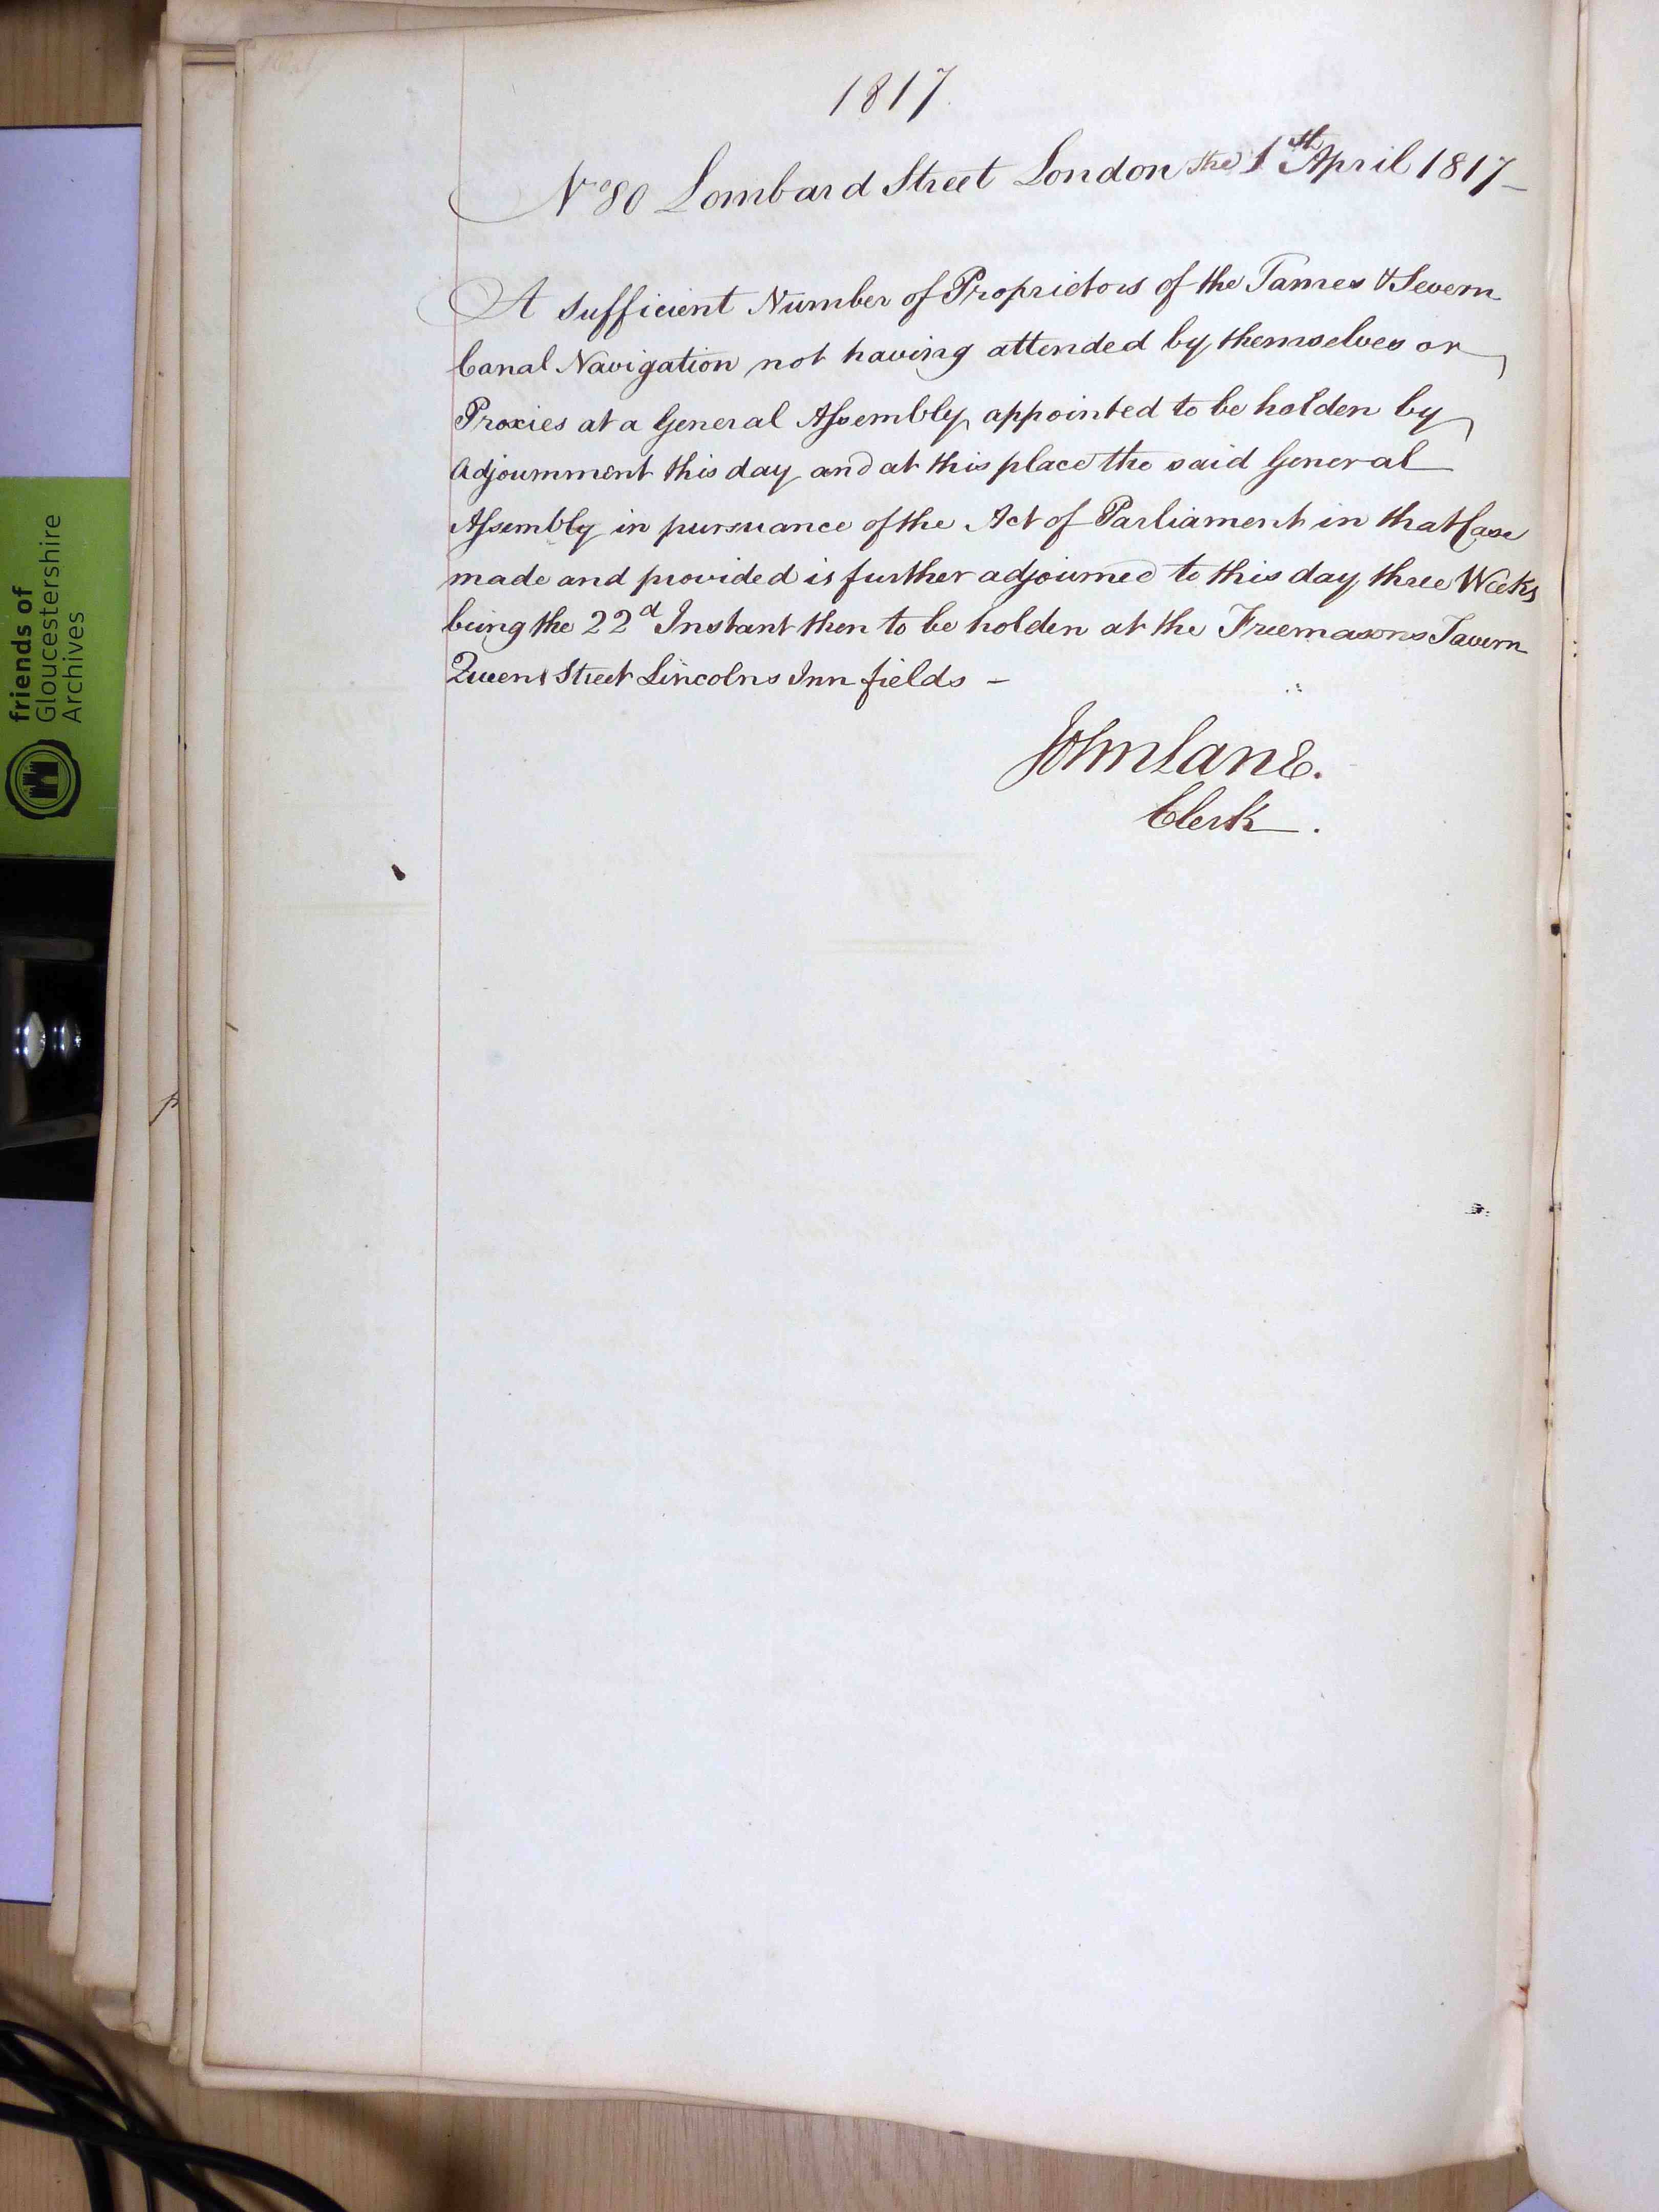 1817
No 80 Lombard Street London the 1st April 1817 -
A sufficient Number of Proprietors of the Tames & Severn
Canal Navigation not having attended by themselves or
Proxies at a General Assembly appointed to be holden by
Adjournment this day and at this place the said General
Assembly in pursuance of the Act of Parliament in that Case
made and provided is further adjourned to this day three Weeks
being the 22d Instant then to be holden at the Freemasons Tavern
Queens Street Lincolns Inn fields -
John Lane.
Clerk.
friends of
Gloucestershire
Archives